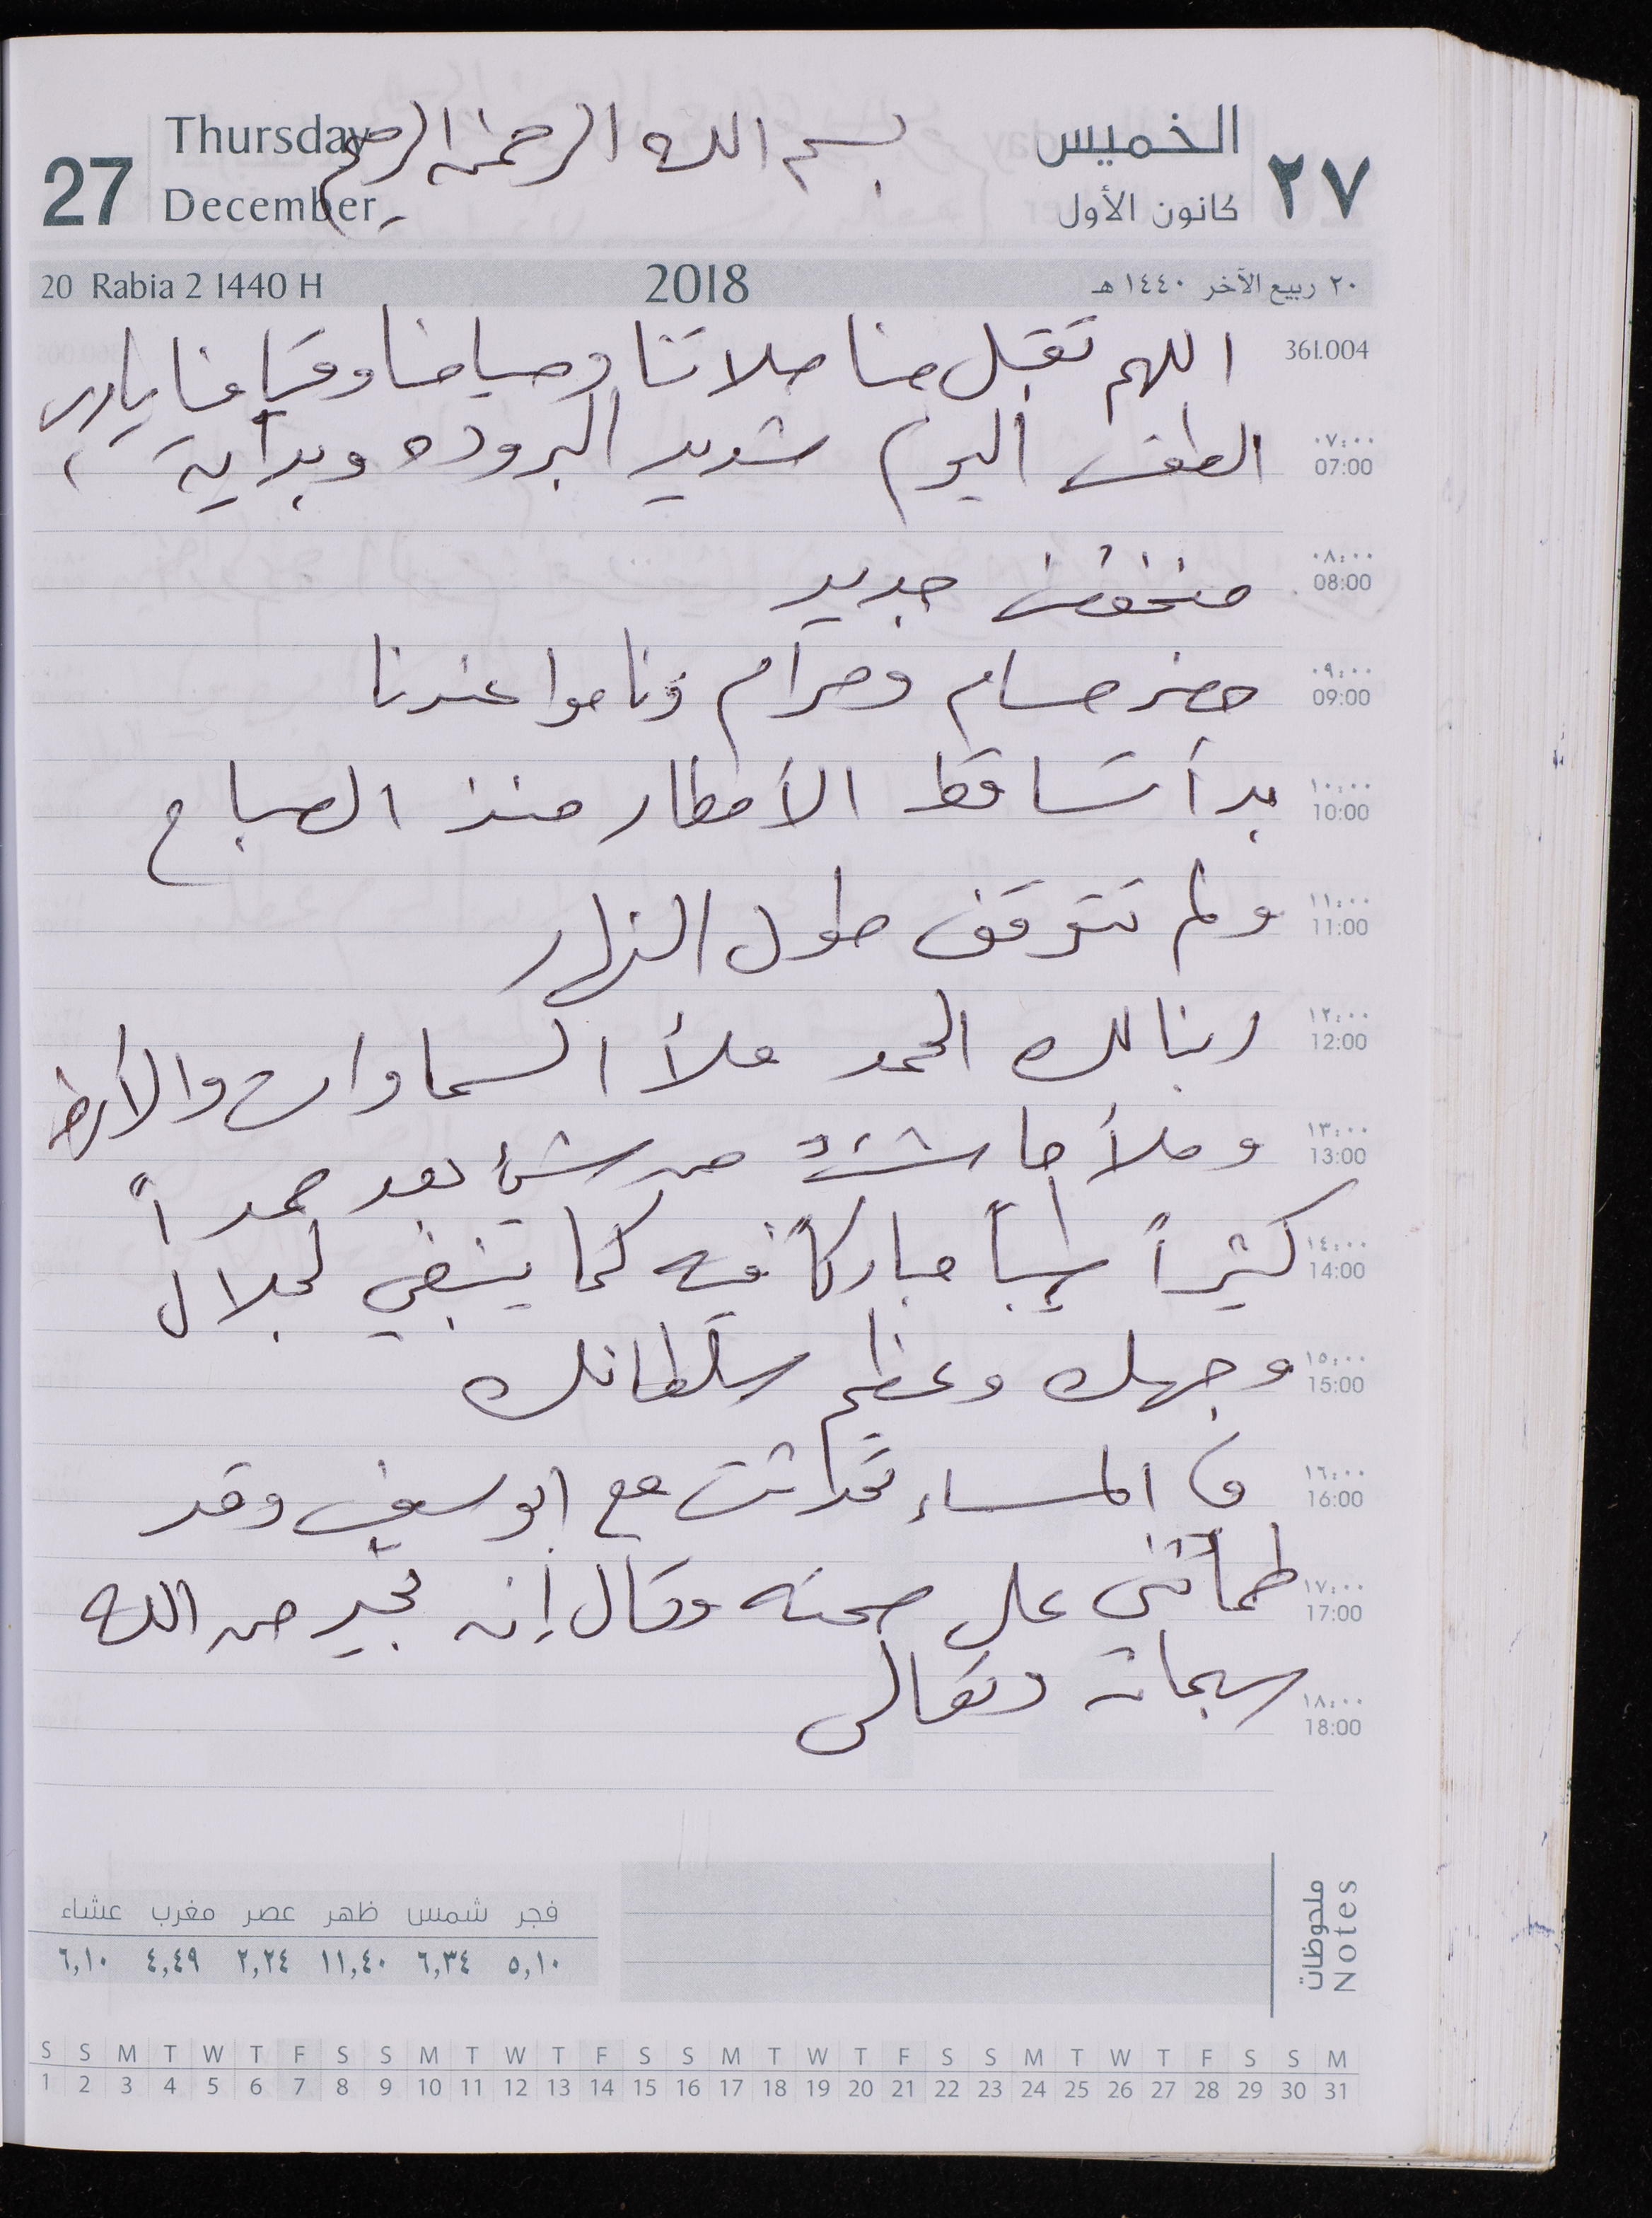 27
Thursday
December
بسم الله الرحمن الرحيم
الخميس
كانون الأول
٢٧
20 Rabia 2 1440 H
2018
٢٠ ربيع الآخر ١٤٤٠ هـ
361.004
اللهم تقبل منا صلاتنا وصيامنا وقيامنا يارب
٠٧:٠٠
07:00
الطقس اليوم شديد البروده وبداية
٠٨:٠٠
08:00
منخفض جديد
٠٩:٠٠
09:00
حضر حسام ومرام وناموا عندنا
١٠:٠٠
10:00
بدأ تساقط الأمطار منذ الصباح
١١:٠٠
11:00
ولم تتوقف طول النهار
١٢:٠٠
12:00
ربنا لك الحمد ملأ السماوات والأرض
١٣:٠٠
13:00
وملأ ما شئت من شئ بعد حمداً
١٤:٠٠
14:00
كثيراً طيباً مباركاً فيه كما ينبغي لجلال
١٥:٠٠
15:00
وجهك وعظيم سلطانك
١٦:٠٠
16:00
في المساء تحدثت مع ابو سيف وقد
١٧:٠٠
17:00
طمأنني على صحته وقال إنه بخير من الله
١٨:٠٠
18:00
سبحانه وتعالى
ملحوظات
Notes
فجر شمس ظهر عصر مغرب عشاء
٥,١٠ ٦,٣٤ ١١,٤٠ ٢,٢٤ ٤,٤٩ ٦,١٠
S S M T W T F S S M T W T F S S M T W T F S S M T W T F S S M
1 2 3 4 5 6 7 8 9 10 11 12 13 14 15 16 17 18 19 20 21 22 23 24 25 26 27 28 29 30 31